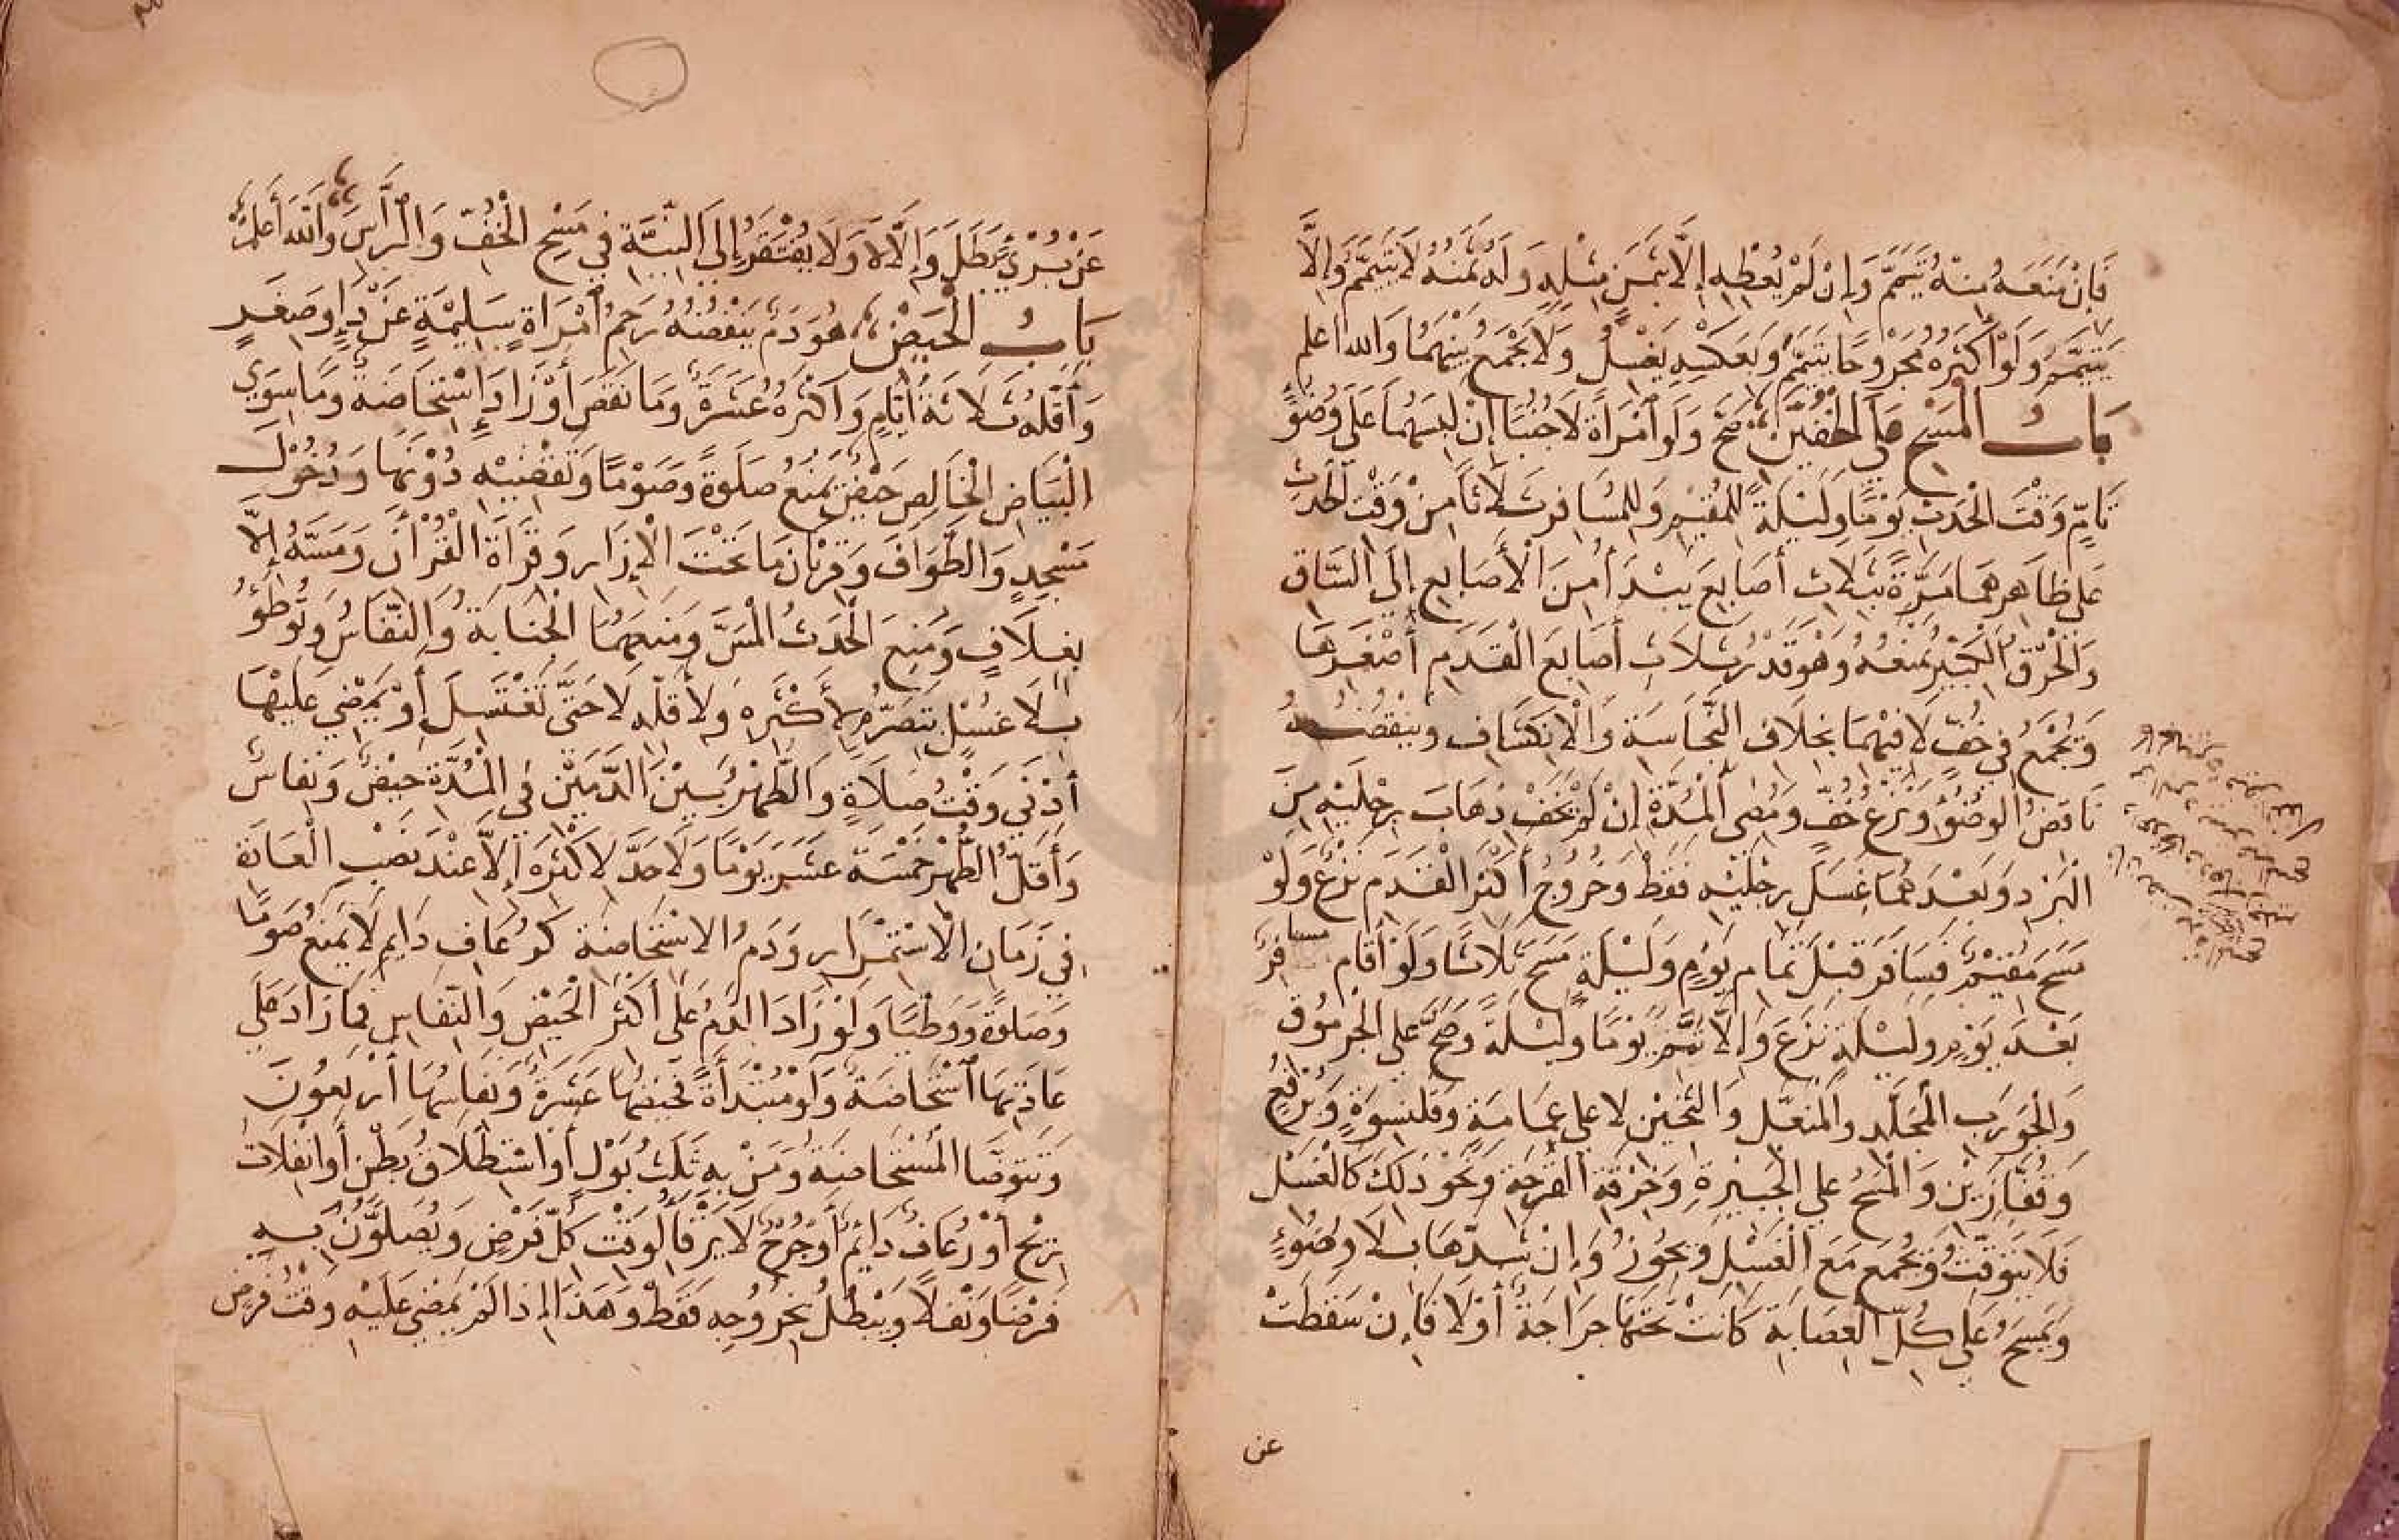 فَإِنْ مَنَعَهُ مِنْهُ تَيَمَّمَ وَإِنْ لَمْ يُعْطِهِ إِلَّا بِثَمَنِ مِثْلِهِ وَلَهُ ثَمَنُهُ لَا يَتَيَمَّمُ وَإِلَّا
يَتَيَمَّمُ وَلَوْ أَكْثَرُهُ مَجْرُوحًا يَتَيَمَّمُ وَبِعَكْسِهِ يَغْسِلُ وَلَا يَجْمَعُ بَيْنَهُمَا وَالله اعلم
بَابُ الْمَسْحِ عَلَى الْخُفَّيْنِ صَحَّ وَلَوِ امْرَأَةً لَا جُنُبًا إِنْ لَبِسَهُمَا عَلَى وُضُوءٍ
تَامٍّ وَقْتَ الْحَدَثِ يَوْمًا وَلَيْلَةً لِلْمُقِيمِ وَلِلْمُسَافِرِ ثَلَاثًا مِنْ وَقْتِ الْحَدَثِ
عَلَى ظَاهِرِهِمَا مَرَّةً بِثَلَاثِ أَصَابِعَ يَبْدَأُ مِنَ الْأَصَابِعِ إِلَى السَّاقِ
وَالْخَرْقُ الْكَبِيرُ يَمْنَعُهُ وَهُوَ قَدْرُ ثَلَاثِ أَصَابِعَ الْقَدَمِ أَصْغَرِهَا
وَيُجْمَعُ فِي خُفٍّ لَا فِيهِمَا بِخِلَافِ النَّجَاسَةِ وَالْاِنْكِشَافِ وَيَنْقُضُهُ
نَاقِضُ الْوُضُوءِ وَنَزْعُ خُفٍّ وَمُضِيُّ الْمُدَّةِ إِنْ لَمْ يَخَفْ ذَهَابَ رِجْلَيْهِ مِنَ
الْبَرْدِ وَبَعْدَهُمَا غَسَلَ رِجْلَيْهِ فَقَطْ وَخُرُوجُ أَكْثَرِ الْقَدَمِ نَزْعٌ وَلَوْ
مَسَحَ مُقِيمٌ فَسَافَرَ قَبْلَ تَمَامِ يَوْمٍ وَلَيْلَةٍ مَسَحَ ثَلَاثًا وَلَوْ أَقَامَ مسافرٌ
بَعْدَ يَوْمٍ وَلَيْلَةٍ نَزَعَ وَإِلَّا تَمَّمَ يَوْمًا وَلَيْلَةً وَصَحَّ عَلَى الْجُرْمُوقِ
وَالْجَوْرَبِ الْمُجَلَّدِ وَالْمُنَعَّلِ وَالثَّخِينِ لَا عَلَى عِمَامَةٍ وَقَلَنْسُوَةٍ وَبُرْقُعٍ
وَقُفَّازَيْنِ وَالْمَسْحُ عَلَى الْجَبِيرَةِ وَخِرْقَةِ الْقُرْحَةِ وَنَحْوِ ذَلِكَ كَالْغَسْلِ
فَلَا يَتَوَقَّتُ وَيُجْمَعُ مَعَ الْغَسْلِ وَيَجُوزُ وَإِنْ شَدَّهَا بِلَا وُضُوءٍ
وَيَمْسَحُ عَلَى كُلِّ الْعِصَابَةِ كَانَتْ تَحْتَهَا جَرَاحَةٌ أَوْ لَا فَإِنْ سَقَطَتْ
عن
عَنْ بُرْءٍ بَطَلَ وَإِلَّا لَا وَلَا يُفْتَقَرُ إِلَى النِّيَّةِ فِي مَسْحِ الْخُفِّ وَالرَّأْسِ وَاللهُ أَعْلَمُ
بَابُ الْحَيْضِ هُوَ دَمٌ يَنْفُضُهُ رَحِمُ امْرَأَةٍ سَلِيمَةٍ عَنْ دَاءٍ وَصِغَرٍ
وَأَقَلُّهُ ثَلَاثَةُ أَيَّامٍ وَأَكْثَرُهُ عَشَرَةٌ وَمَا نَقَصَ أَوْ زَادَ اسْتِحَاضَةٌ وَمَا سِوَى
الْبَيَاضِ الْخَالِصِ حَيْضٌ يَمْنَعُ صَلَوةً وَصَوْمًا وَتَقْضِيهِ دُونَهَا وَدُخُولَ
مَسْجِدٍ وَالطَّوَافَ وَقِرْبَانَ مَا تَحْتَ الْإِزَارِ وَقِرَاةَ الْقُرْآنِ وَمَسَّهُ إِلَّا
بِغِلَافٍ وَمَنَعَ الْحَدَثُ الْمَسَّ وَمَنَعَهُمَا الْجَنَابَةُ وَالنِّفَاسُ وَتُوطَؤُ
بِلَا غُسْلٍ بِتَصَرُّمٍ لِأَكْثَرِهِ وَلِأَقَلِّهِ لَا حَتَّى تَغْتَسِلَ أَوْ يَمْضِيَ عَلَيْهَا
أَدْنَى وَقْتِ صَلَاةٍ وَالطُّهْرُ بَيْنَ الدَّمَيْنِ فِي الْمُدَّةِ حَيْضٌ وَنِفَاسٌ
وَأَقَلُّ الطُّهْرِ خَمْسَةَ عَشَرَ يَوْمًا وَلَا حَدَّ لِأَكْثَرِهِ إِلَّا عِنْدَ نَصْبِ الْعَادَةِ
فِي زَمَانِ الْاِسْتِمْرَارِ وَدَمُ الِاسْتِحَاضَةِ كَرُعَافٍ دَايِمٍ لَا يَمْنَعُ صَوْمًا
وَصَلوةً وَوَطْئًا وَلَوْ زَادَ الدَّمُ عَلَى أَكْثَرِ الْحَيْضِ وَالنِّفَاسِ فَمَا زَادَ عَلَى
عَادَتِهَا اسْتِحَاضَةٌ وَلَوْ مُبْتَدَأَةً فَحَيْضُهَا عَشَرَةٌ وَنِفَاسُهَا أَرْبَعُونَ
وَتَتَوَضَّأُ الْمُسْتَحَاضَةُ وَمَنْ بِهِ سَلَسُ بَوْلٍ أَوِ اسْتِطْلَاقُ بَطْنٍ أَوِ انْفِلَاتُ
رِيحٍ أَوْ رُعَافٌ دَائِمٌ أَوْ جُرْحٌ لَا يَرْقَأُ لِوَقْتِ كُلِّ فَرْضٍ وَيُصَلُّونَ بِهِ
فَرْضًا وَنَفْلًا وَيَبْطُلُ بِخُرُوجِهِ فَقَطْ وَهَذَا إِذَا لَمْ يَمْضِي عَلَيْهِ وَقْتُ فَرْضٍ